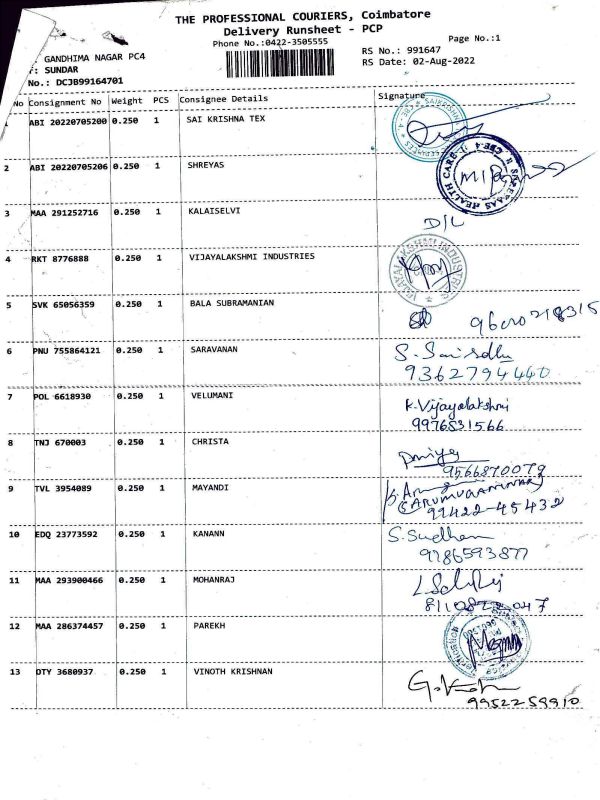 THE PROFESSIONAL COURIERS, Coimbatore
Delivery Runsheet - PCP
Phone No.:0422-3505555
Page No.:1
RS No.: 991647
RS Date: 02-Aug-2022
. GANDHIMA NAGAR PC4
: SUNDAR
No.: DCJB99164701
No Consignment No Weight PCS Consignee Details Signature
ABI 20220705200 0.250 1 SAI KRISHNA TEX
2 ABI 20220705206 0.250 1 SHREYAS
3 MAA 291252716 0.250 1 KALAISELVI D/L
4 RKT 8776888 0.250 1 VIJAYALAKSHMI INDUSTRIES
VIJAYALAKSHMI INDUSTRIES
5 SVK 65056359 0.250 1 BALA SUBRAMANIAN
6 PNU 755864121 0.250 1 SARAVANAN
9362794440
7 POL 6618930 0.250 1 VELUMANI
K.Vijayalakshmi
9976831566
8 TNJ 670003 0.250 1 CHRISTA
9566870079
9 TVL 3954089 0.250 1 MAYANDI
99422-45432
10 EDQ 23773592 0.250 1 KANANN
9786593877
11 MAA 293900466 0.250 1 MOHANRAJ
12 MAA 286374457 0.250 1 PAREKH
13 OTY 3680937 0.250 1 VINOTH KRISHNAN
9952258910